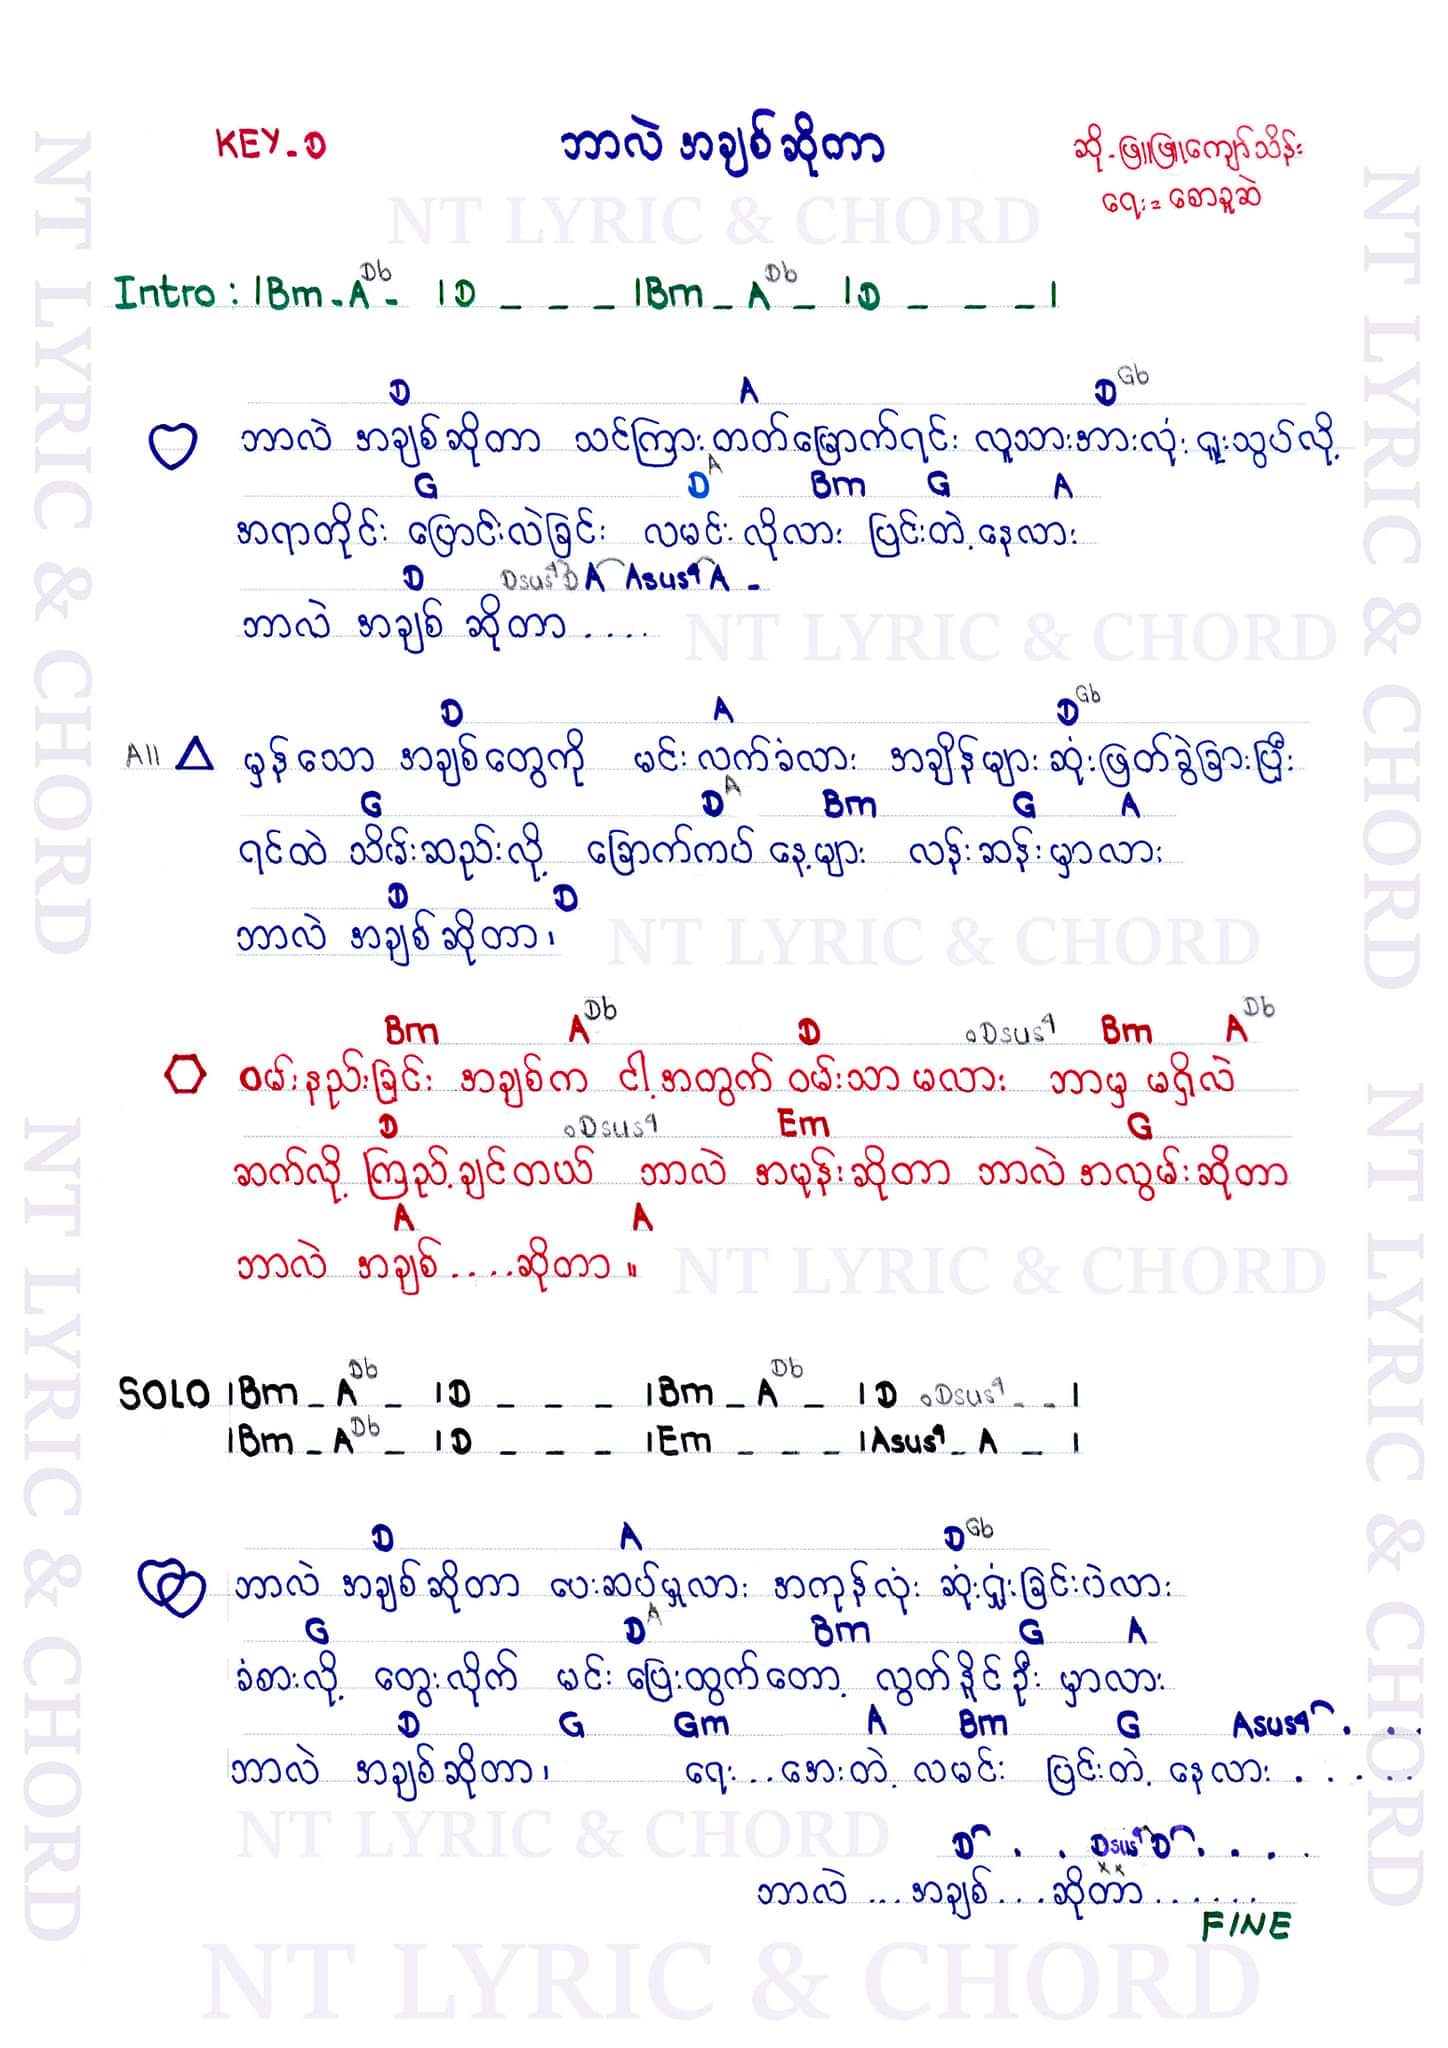 KEY-D
ဘာလဲ အချစ်ဆိုတာ
ဆို-ဖြူဖြူကျော်သိန်း
ရေး= စောခူဆဲ
NT LYRIC & CHORD
Intro : |Bm - A Db - |D _ _ _ |Bm _ A Db _ |D _ _ _|
D A D Gb
ဘာလဲ အချစ်ဆိုတာ သင်ကြားတတ်မြောက်ရင်း လူသားအားလုံး ရူးသွပ်လို့
G D A Bm G A
အရာတိုင်း ပြောင်းလဲခြင်း လမင်းလိုလား ပြင်းတဲ့နေလား
D Dsus4 D A Asus4 A -
ဘာလဲ အချစ် ဆိုတာ ....
NT LYRIC & CHORD
D A D Gb
All မှန်သော အချစ်တွေကို မင်းလက်ခံလား အချိန်များဆုံးဖြတ်ခွဲခြားပြီး
G D A Bm G A
ရင်ထဲ သိမ်းဆည်းလို့ ခြောက်ကပ်နေ့များ လန်းဆန်းမှာလား
D D
ဘာလဲ အချစ်ဆိုတာ၊
NT LYRIC & CHORD
Bm A Db D oDsus4 Bm A Db
ဝမ်းနည်းခြင်း အချစ်က ငါ့အတွက် ဝမ်းသာမလား ဘာမှ မရှိလဲ
D oDsus4 Em G
ဆက်လို့ ကြည့်ချင်တယ် ဘာလဲ အမုန်းဆိုတာ ဘာလဲ အလွမ်းဆိုတာ
A A
ဘာလဲ အချစ် ....ဆိုတာ ။
NT LYRIC & CHORD
SOLO |Bm _ A Db _ |D _ _ _ |Bm _ A Db _ |D oDsus4 - - |
|Bm _ A Db _ |D _ _ _ |Em _ _ _ |Asus4 _ A _ |
D A D Gb
ဘာလဲ အချစ်ဆိုတာ ပေးဆပ်မှုလား အကုန်လုံး ဆုံးရှုံးခြင်းပဲလား
G D A Bm G A
ခံစားလို့ တွေးလိုက် မင်းပြေးထွက်တော့ လွတ်နိူင်ဦး မှာလား
D G Gm A Bm G Asus4 . . .
ဘာလဲ အချစ်ဆိုတာ၊ ရေး...အေးတဲ့ လမင်း ပြင်းတဲ့ နေလား .....
NT LYRIC & CHORD
D . . Dsus4 D . . . .
ဘာလဲ ...အချစ်....ဆိုတာ .......
FINE
NT LYRIC & CHORD
NT LYRIC & CHORD
NT LYRIC & CHORD
NT LYRIC & CHORD
NT LYRIC & CHORD